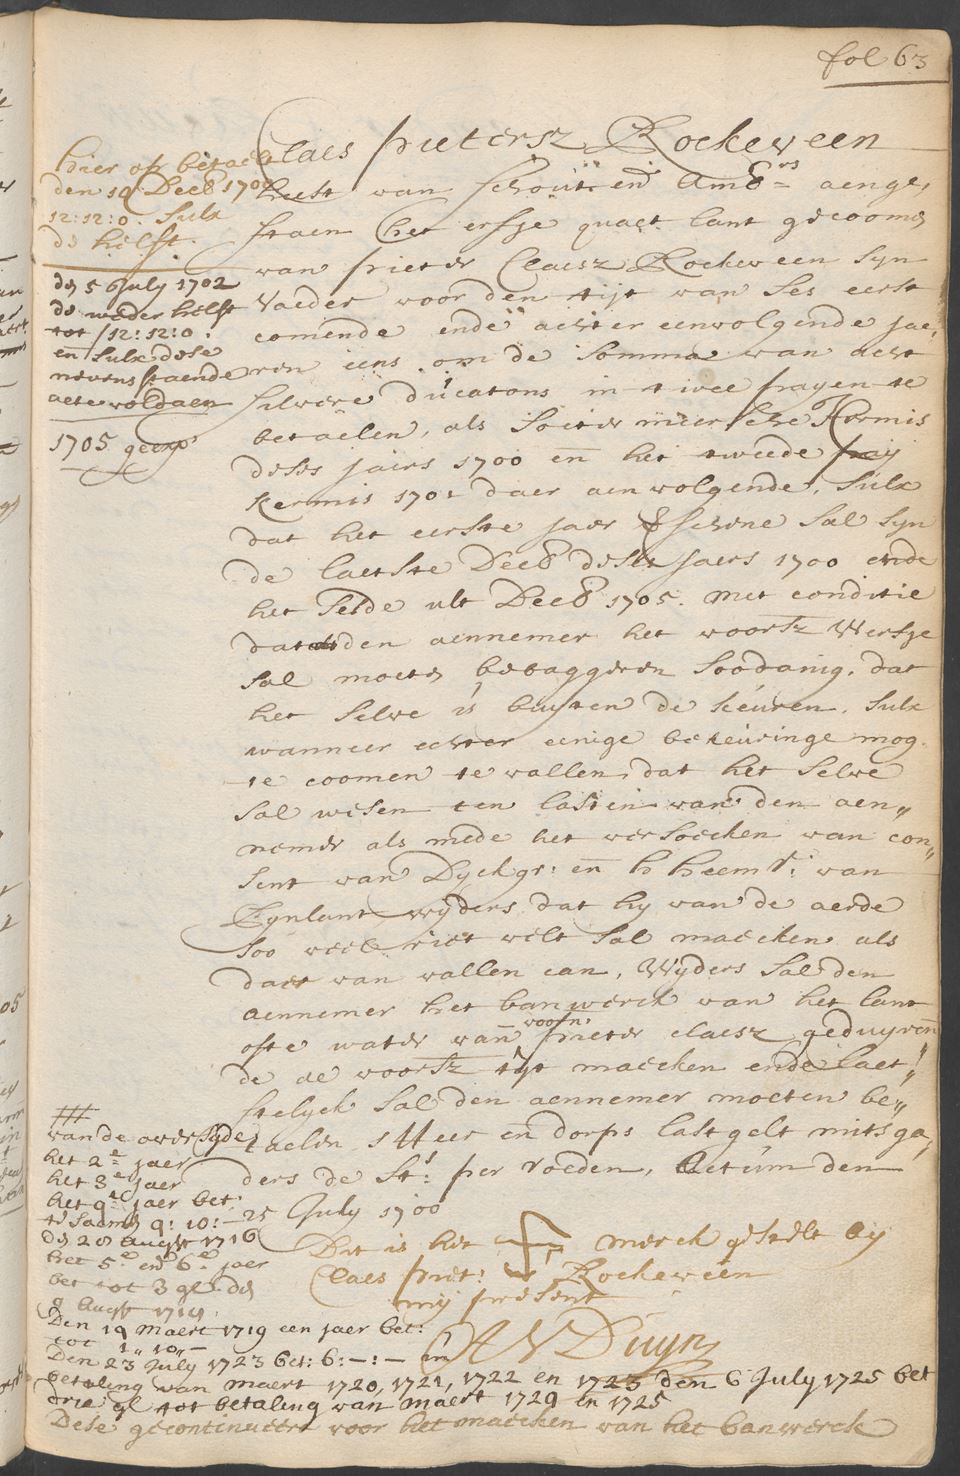 fol 63
Claes pietersz Rockeveen
heeft van schout end Amb:rs aenge,
staen het erfje quaet lant gecoomen
van pieter Claesz Rockeveen syn
Vaeder voor den tijt van ses eerst
comende ende achter eenvolgende jae,
ren eens om de somma van acht
silvere ducatons in twee payen te
betaelen, als Soeter meersche Kermis
deses jaers 1700 en het tweede paij
Kermis 1701 daer aen volgende, sulx
dat het eerste jaer sal syn
de laetste Decb deses jaers 1700 ende
het selde ult Decb 1705. met conditie
dat den aennemer het voorsz Werfje
sal moeten bebaggeren soodanig, dat
het selve is buyten de keuren, sulx
wanneer echter eenige bekeuringe mog
te coomen te vallen, dat het selve
sal wesen ten lasten van den aen„
nemer als mede het versoecken van con„
sent van Dyckgr: en h heemr: van
Rynlant wyders dat hy van de aerde
soo veel riet velt sal maecken als
daer van vallen can, Wyders sal den
aennemer het banwerck van het lant
ofte water van voorn: pieter claesz geduyren
de de voorsz tyt maecken ende laet
stelyck sal den aennemer moeten be„
taelen s Heer en dorps last gelt mitsga,
ders de St: per roeden, Actum den
25 July 1700
Dit is het merck gestelt by
Claes piet: Rockeveen
mij present
A V Duyn
Hier op betaelt
den 10 Decb 1700
12:12:0. sulx
de helft.
den 5 July 1702
de weder helft
tot 12:12:0.
en sulx dese
nevens staende
acte voldaen
1705 geexp
van de overzyde
het 2e jaer
het 3e jaer
het 4e jaer bet:
te saemen 9:10:—
den 20 augst 1716
het 5e end 6e jaer
bet tot 3 gl den
9 Augst 1718
Den 19 maert 1719 een jaer bet:
tot 1„10„—
Den 23 July 1723 bet: 6:—:— in
betaling van maert 1720, 1721, 1722 en 1723 den 6 July 1725 bet
drie gl tot betaling van maert 1724 en 1725
Dese gecontinueert voor het maecken van het banwerck